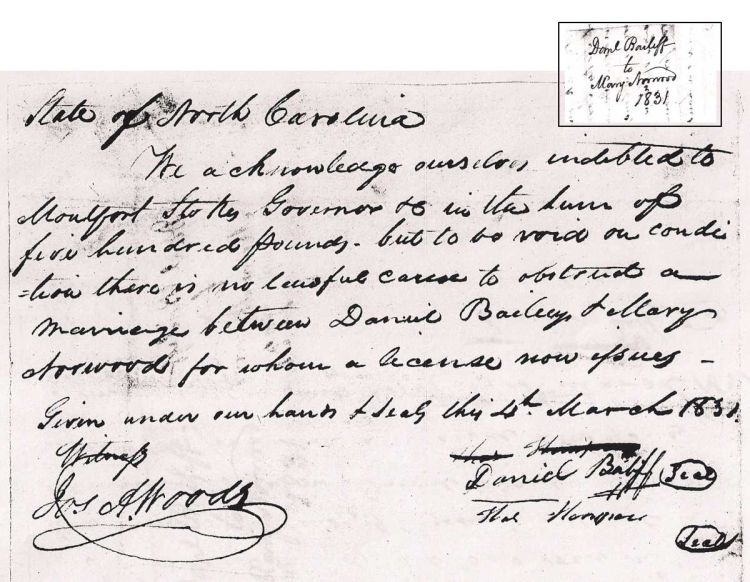 Danl Bailiff
to
Mary Norwood
1831
State of North Carolina
We acknowledge ourselves indebted to
Montfort Stokes Governor &c in the sum of
five hundred pounds - but to be void on condi
=tion there is no lawful cause to obstruct a
marriage between Daniel Bailey & Mary
Norwood for whom a license now issues -
Given under our hands & seals this 4th March 1831
Witness
Daniel Bailiff Seal
Jos A. Woods
Seal